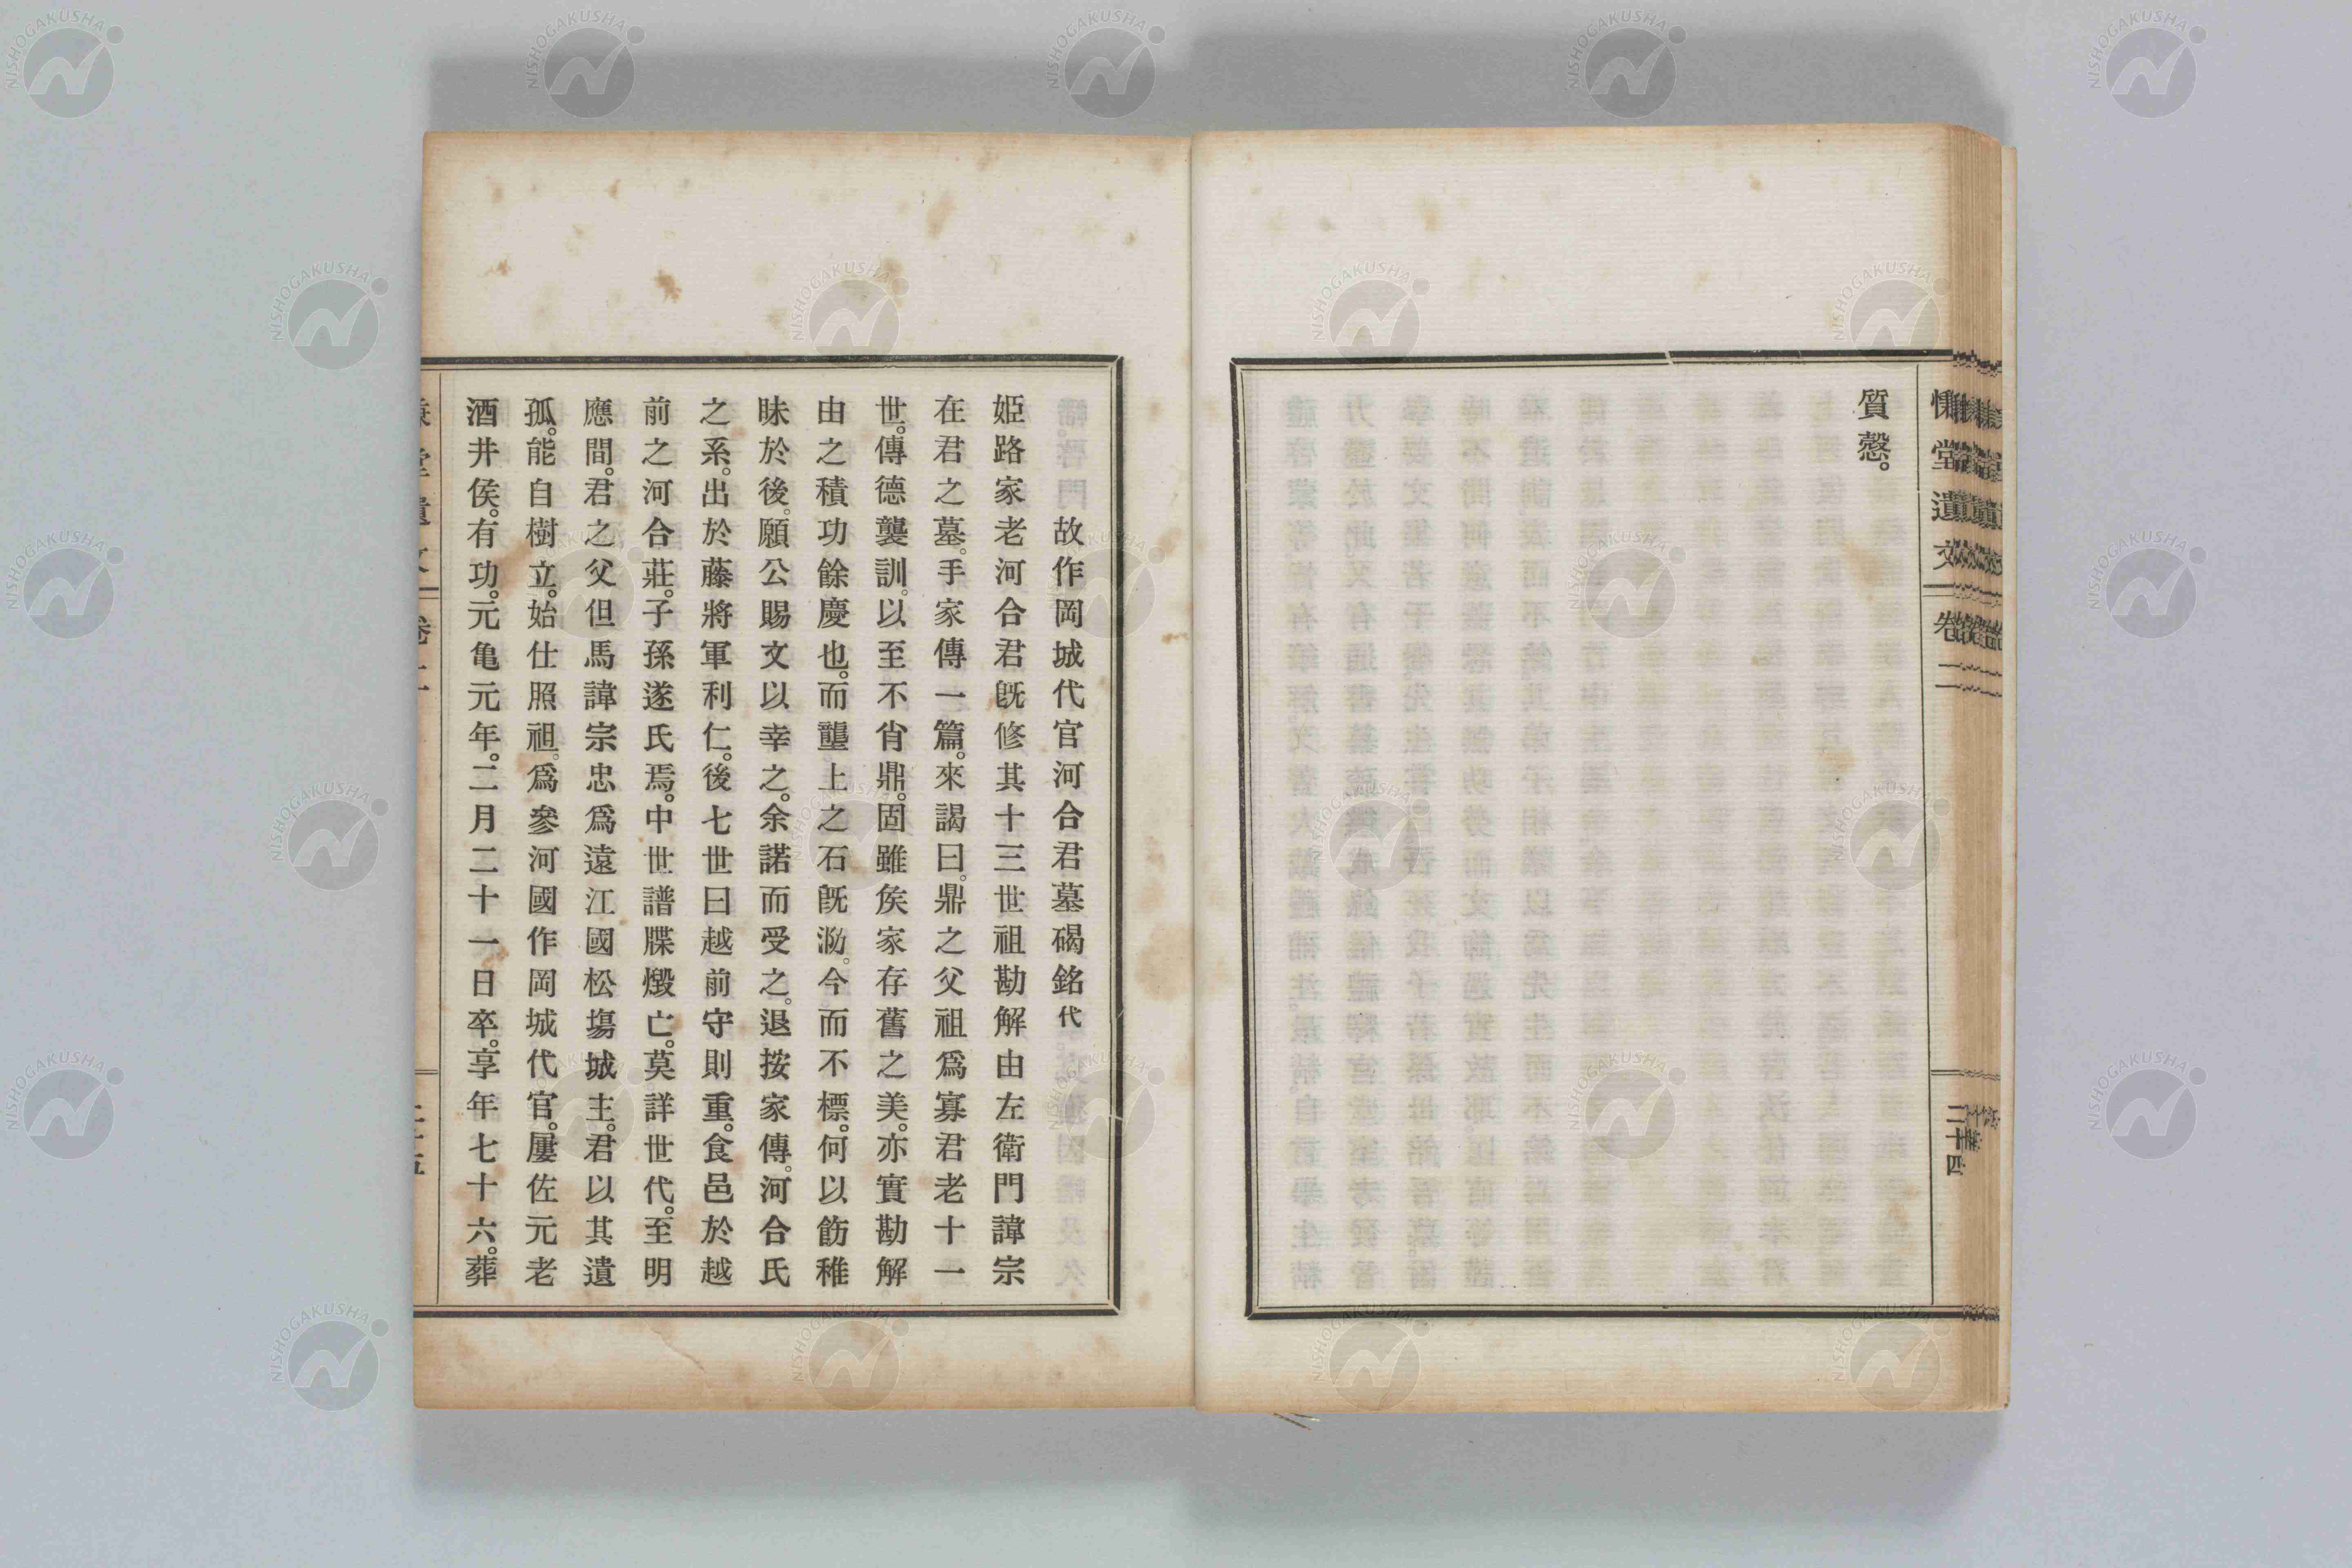 慊堂遺文
卷二
二十四
質愨。
故作岡城代官河合君墓碣銘代
姫路家老河合君旣修其十三世祖勘解由左衛門諱宗
在君之墓。手家傳一篇。來謁曰。鼎之父祖爲寡君老十一
世。傳德襲訓。以至不肖鼎。固雖矦家存舊之美。亦實勘解
由之積功餘慶也。而壟上之石旣泐。今而不標。何以飭稚
昧於後。願公賜文以幸之。余諾而受之。退按家傳。河合氏
之系。出於藤將軍利仁。後七世曰越前守則重。食邑於越
前之河合莊。子孫遂氏焉。中世譜牒燬亡。莫詳世代。至明
應間。君之父但馬諱宗忠爲遠江國松塲城主。君以其遺
孤。能自樹立。始仕照祖。爲參河國作岡城代官。屢佐元老
酒井侯。有功。元亀元年。二月二十一日卒。享年七十六。葬
NISHOGAKUSHA